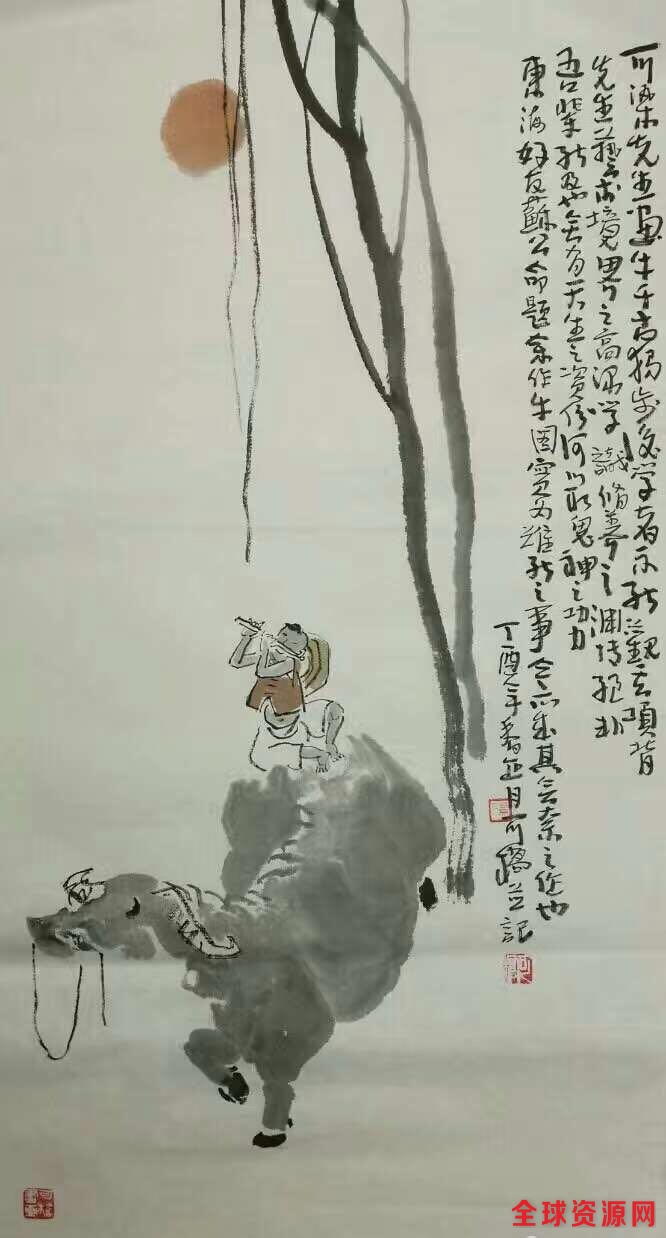 可染先生画牛千古独步后学者不能望其项背
先生艺术境界之高深学识修养之渊博绝非
吾辈能及也无有天生之资份何以取鬼神之功力
东海好友苏公命题余作牛图实为难能之事
丁酉年春正月可 并记
全球资源网